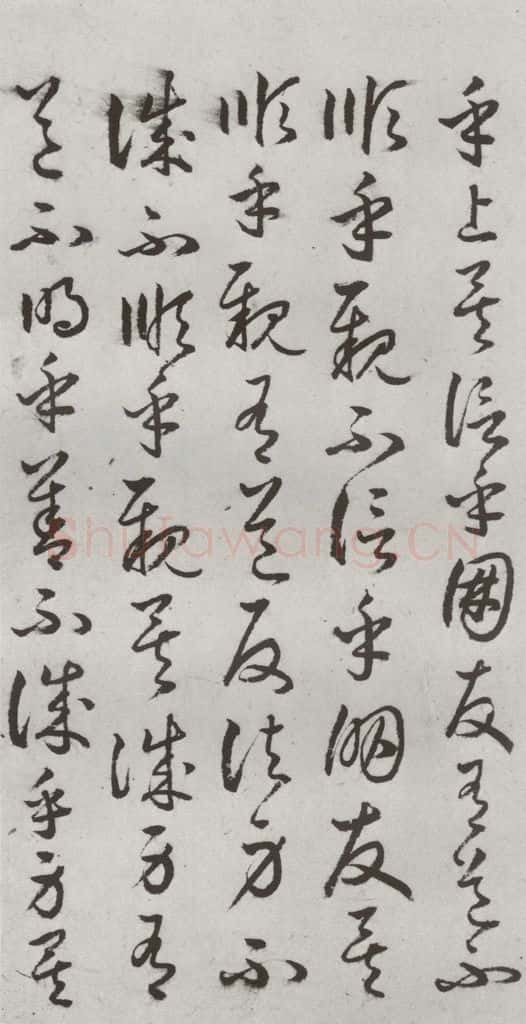 乎上矣信乎朋友有道不
順乎親不信乎朋友矣
順乎親有道反諸身不
誠不順乎親矣誠身有
道不明乎善不誠乎身矣
Shufawang.CN